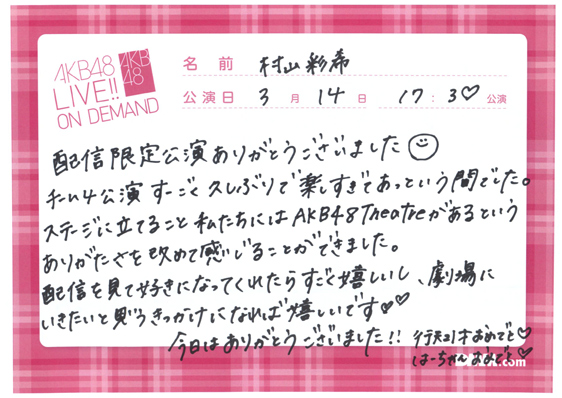 AKB48
LIVE!!
ON DEMAND
AKB
48
名前 村山彩希
公演日 3月14日 17:30公演
配信限定公演ありがとうございました
チーム4公演すーごく久しぶりで楽しすぎてあっという間でした。
ステージに立てること私たちにはAKB48Theatreがあるという
ありがたさを改めて感じることができました。
配信を見て好きになってくれたらすごく嬉しいし、劇場に
いきたいと思うきっかけになれば嬉しいです♡♡
今日はありがとうございました!! 行天おめでと♡
はーちゃんおめでと♡
.com